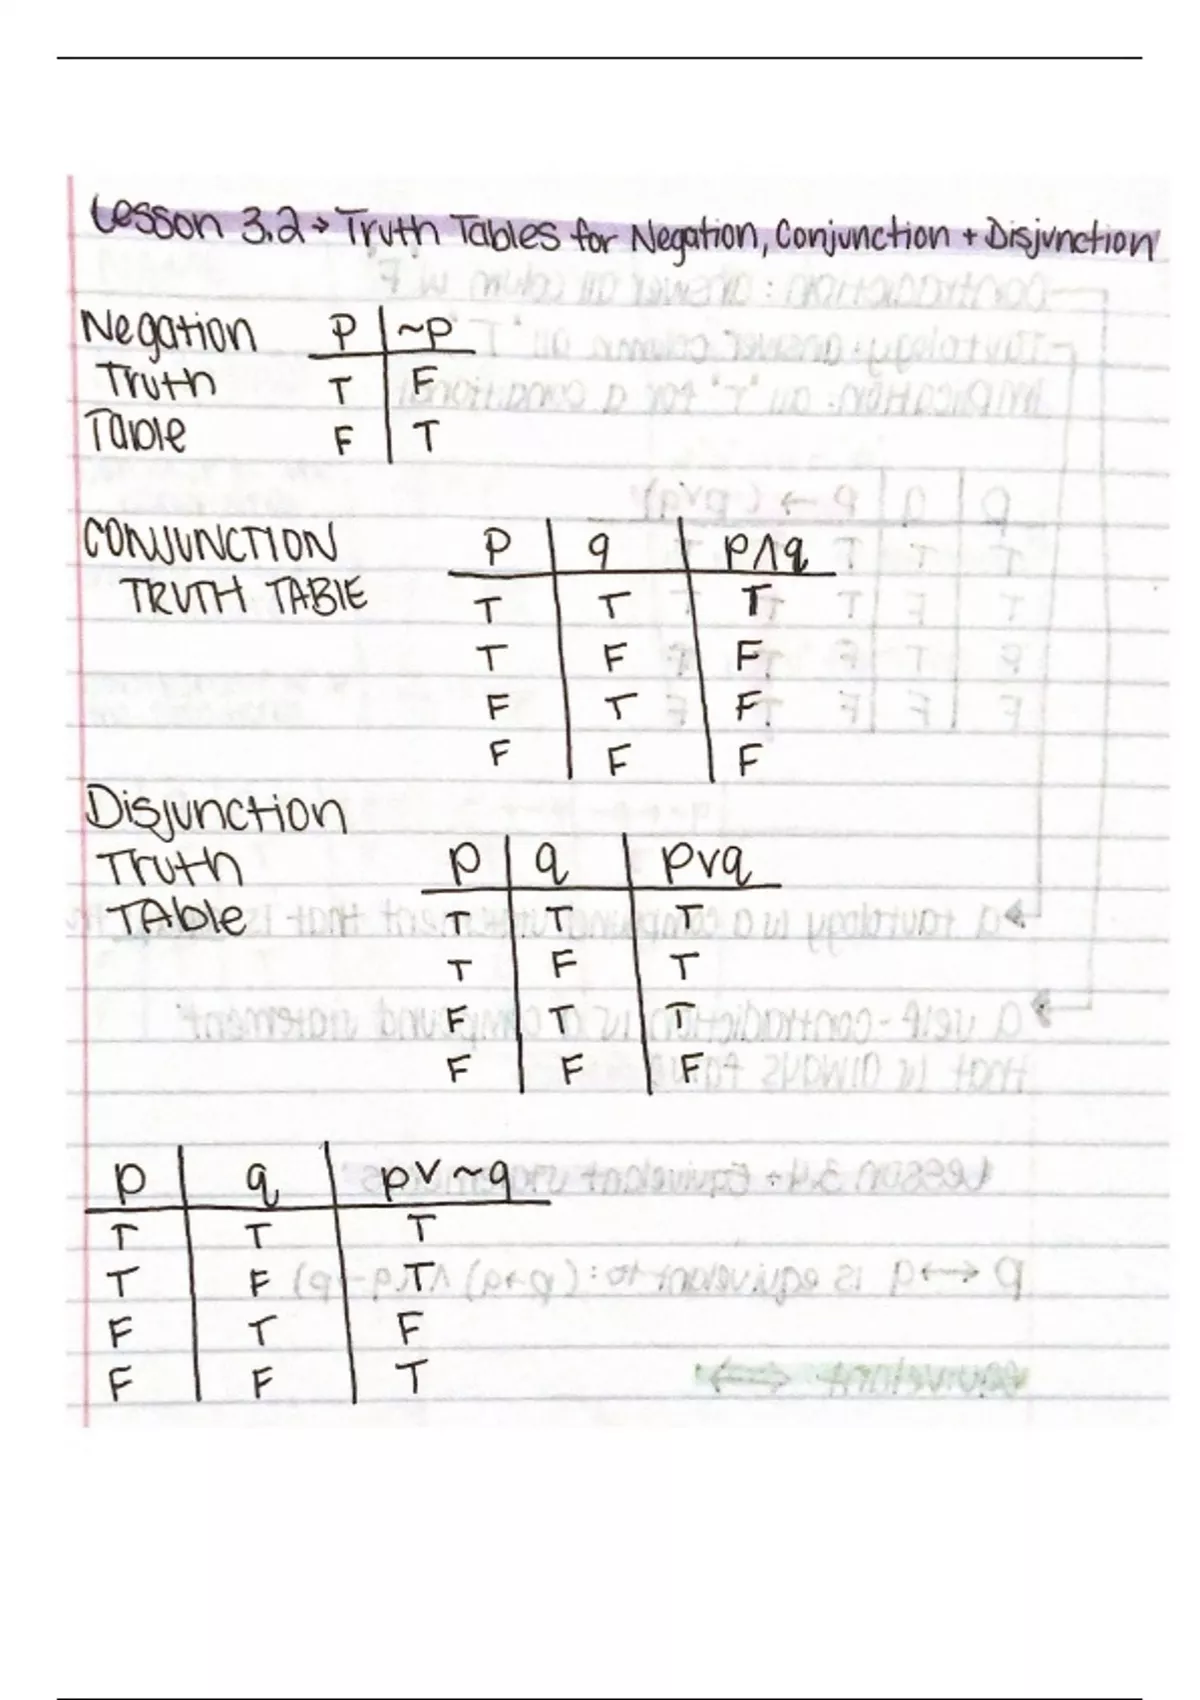 Lesson 3.2 → Truth Tables for Negation, Conjunction + Disjunction
Negation
Truth
Table
p ~p
T F
F T
CONJUNCTION
TRUTH TABLE
p q p∧q
T T T
T F F
F T F
F F F
Disjunction
Truth
TAble
p q p∨q
T T T
T F T
F T T
F F F
p q p∨~q
T T T
T F T
F T F
F F T